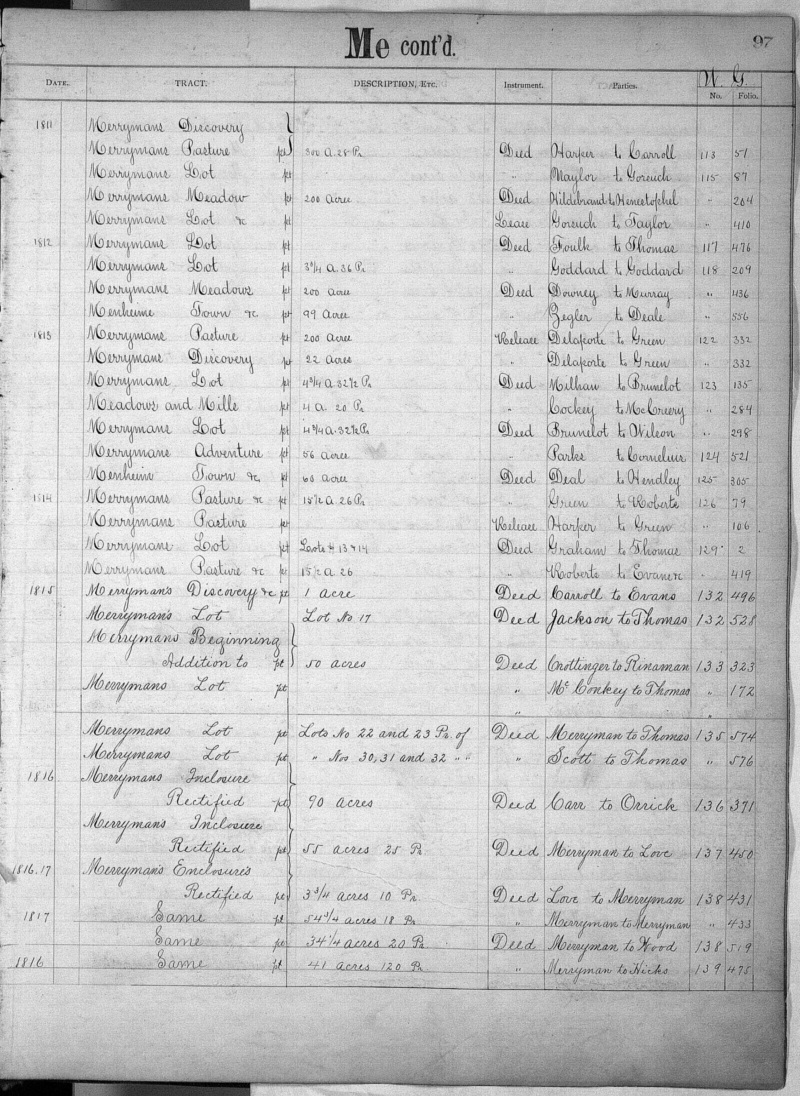 Me cont'd.
97
DATE. TRACT. DESCRIPTION, ETC. Instrument. Parties. W. G. No. Folio.
1811 Merrymans Discovery
Merrymans Pasture pt 300 A. 28 Pr. Deed Harper to Carroll 113 51
Merrymans Lot pt " Naylor to Gorsuch 115 87
Merrymans Meadow pt 200 Acres Deed Hildebrand to Henestophel " 204
Merrymans Lot &c pt Lease Gorsuch to Taylor " 410
1812 Merrymans Lot pt Deed Foulk to Thomas 117 476
Merrymans Lot pt 3 3/4 A. 36 Pr. " Goddard to Goddard 118 209
Merrymans Meadows pt 200 Acres Deed Downey to Murray " 436
Menheime Town &c pt 99 Acres " Zegler to Deale " 556
1813 Merrymans Pasture pt 200 Acres Release Delaporte to Green 122 332
Merrymans Discovery pt 22 Acres " Delaporte to Green " 332
Merrymans Lot pt 4 3/4 A. 32 1/2 Pr. Deed Milhau to Brunelot 123 135
Meadows and Mills pt 4 A. 20 Pr. " Cockey to McCreery " 284
Merrymans Lot pt 4 3/4 A. 32 1/2 Pr. Deed Brunelot to Wilson " 298
Merrymans Adventure pt 56 Acres " Parks to Cornelius 124 521
Menheim Town &c pt 60 Acres Deed Deal to Hendley 125 305
1814 Merrymans Pasture &c pt 15 1/2 A. 26 Pr. " Green to Roberts 126 79
Merrymans Pasture pt Release Harper to Green " 106
Merrymans Lot pt Lots # 13 & 14 Deed Graham to Thomas 129 2
Merrymans Pasture &c pt 15 1/2 A 26 " Roberts to Evans &c " 419
1815 Merryman's Discovery &c pt 1 acre Deed Carroll to Evans 132 496
Merryman's Lot Lot No 17 Deed Jackson to Thomas 132 528
Merrymans Beginning
Addition to pt 50 acres Deed Crottinger to Rinaman 133 323
Merrymans Lot pt " Mc Conkey to Thomas " 172
" "
Merrymans Lot pt Lots No 22 and 23 Pr. of Deed Merryman to Thomas 135 574
Merrymans Lot pt " Nos 30, 31 and 32 " " " Scott to Thomas " 576
1816 Merrymans Inclosure
Rectified pt 90 acres Deed Carr to Orrick 136 371
Merryman's Inclosure
Rectified pt 55 acres 25 Pr Deed Merryman to Love 137 450
1816.17 Merryman's Enclosure's
Rectified pt 3 3/4 acres 10 Pr. Deed Love to Merryman 138 431
1817 Same pt 54 3/4 acres 18 Pr " Merryman to Merryman " 433
Same pt 34 1/4 acres 20 Pr Deed Merryman to Wood 138 519
1816 Same pt 41 acres 120 Pr " Merryman to Hicks 139 475